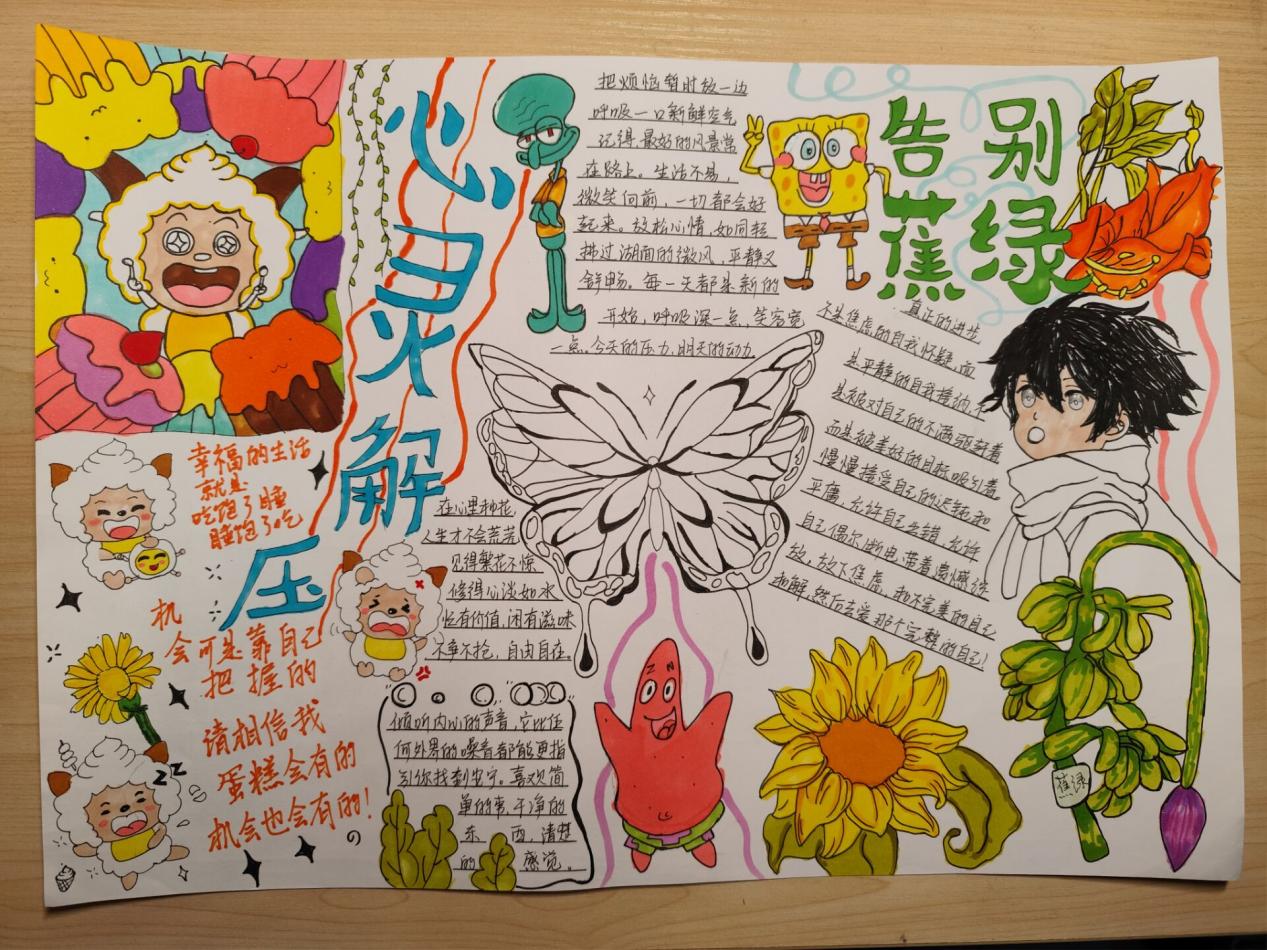 心灵解压
把烦恼暂时放一边
呼吸一口新鲜空气
记得,最好的风景常
在路上。生活不易,
微笑向前,一切都会好
起来。放松心情,如同轻
拂过湖面的微风,平静又
舒畅。每一天都是新的
开始,呼吸深一点,笑容宽
一点,今天的压力,明天的动力。
告别
蕉绿
真正的进步
不是焦虑的自我怀疑,而
是平静的自我接纳,不
是被对自己的不满驱赶着
而是被美好的目标吸引着。
慢慢接受自己的迟钝和
平庸,允许自己出错,允许
自己偶尔断电,带着遗憾绽
放,放下焦虑,和不完美的自己
和解,然后去爱那个完整的自己!
蕉绿
幸福的生活
就是
吃饱了睡
睡饱了吃
机
会可是靠自己
把握的
请相信我
蛋糕会有的
机会也会有的!
の
在心里种花,
人生才不会荒芜
见得繁花不惊
修得心淡如水
忙有价值,闲有滋味
不争不抢,自由自在。
倾听内心的声音,它比任
何外界的噪音都能更指
引你找到安宁。喜欢简
单的事,干净的
东西,清楚
的感觉。
ZZZ
Z N